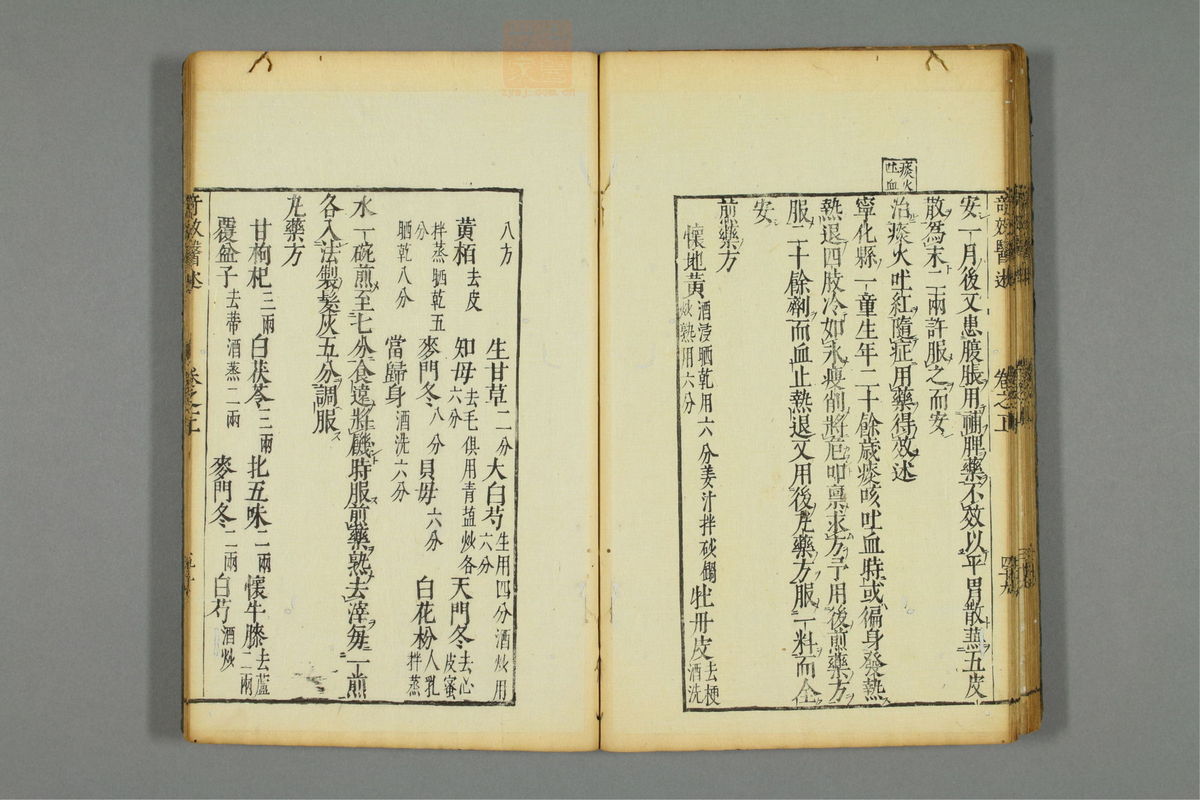 痰火
吐血
安一月後又患腹脹用補脾藥不效以平胃散蒸五皮
散為末二兩許服之而安
治痰火吐紅隨症用藥得效述
寧化縣一童生年二十餘歲痰咳吐血時或徧身發熱
熱退四肢冷如氷瘦削將危叩稟求方予用後煎藥方
服二十餘劑而血止熱退又用後丸藥方服一料而全
安
煎藥方
懷地黃 酒浸晒乾用六分姜汁拌
炒熟用六分 牡丹皮 去梗酒洗
八分
生甘草 二分 大白芍 生用四分酒炒用六分
黃栢 去皮 知母 去毛俱用青盐炒各六分 天門冬 去心皮蜜
拌蒸晒乾五分 麥門冬 八分 貝母 六分 白花粉 人乳拌蒸
晒乾八分 當歸身 酒洗六分
水一碗煎至七分食遠將饑時服煎藥熟去滓每一煎
各入法製髮灰五分調服
丸藥方
甘枸杞 三兩 白茯苓 三兩 北五味 二兩 懷牛膝 去蘆二兩
覆盆子 去蒂酒蒸二兩 麥門冬 二兩 白芍 酒炒
奇效醫述
卷之上